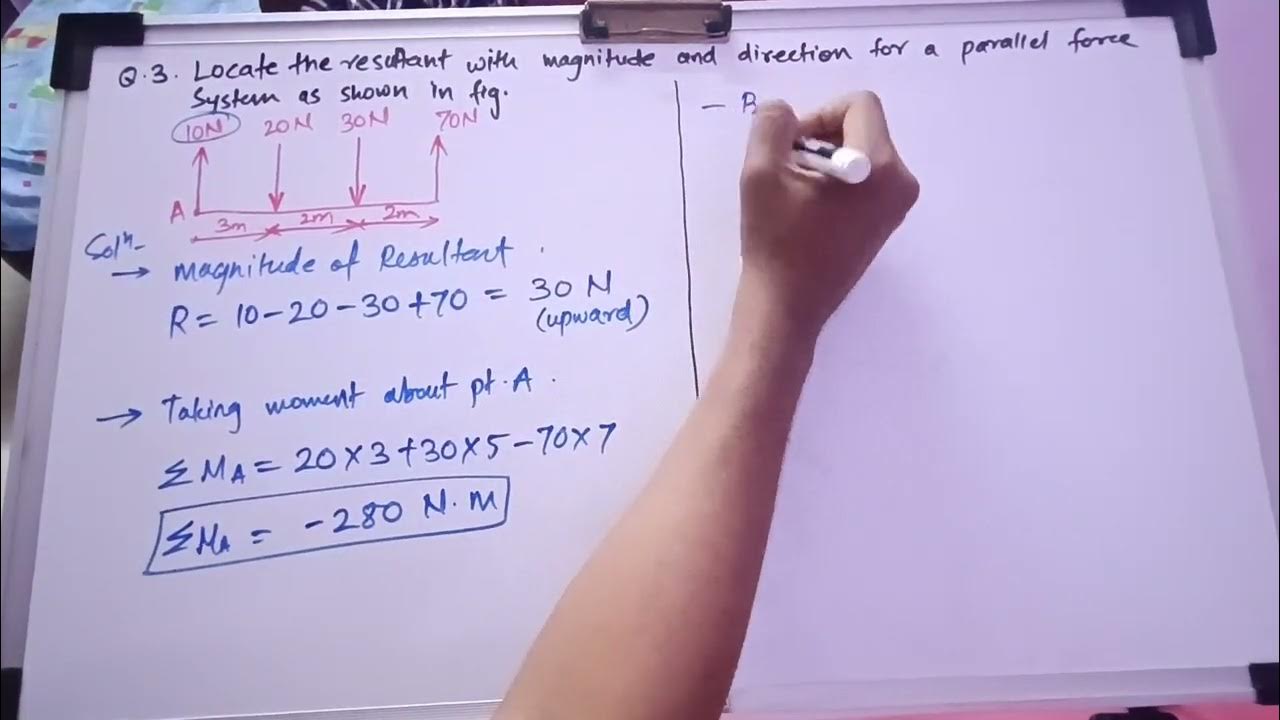 Q.3. Locate the resultant with magnitude and direction for a parallel force
System as shown in fig.
10N 20N 30N 70N
A
3m 2m 2m
Solⁿ-
→ Magnitude of Resultant.
R = 10-20-30+70 = 30 N
(upward)
→ Taking moment about pt.A.
ΣMA = 20×3+30×5-70×7
ΣMA = -280 N.m
- B